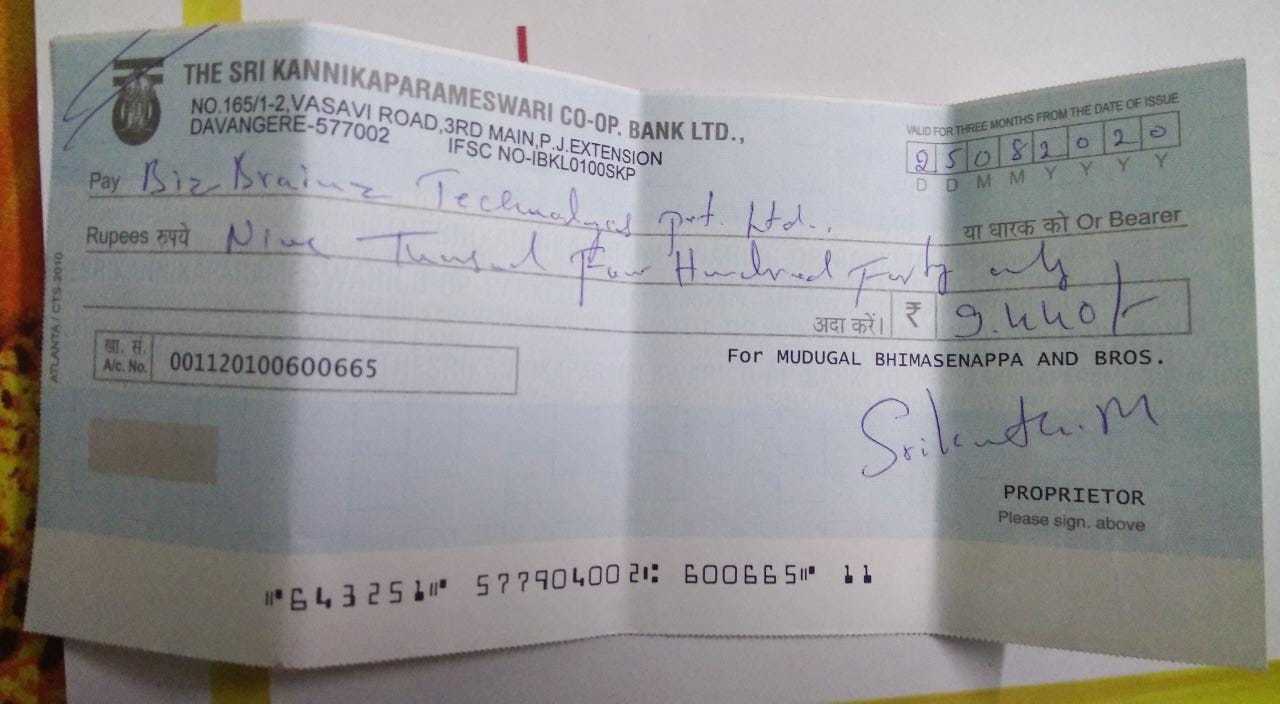 THE SRI KANNIKAPARAMESWARI CO-OP. BANK LTD.,
NO.165/1-2,VASAVI ROAD,3RD MAIN,P.J.EXTENSION
DAVANGERE-577002 IFSC NO-IBKL0100SKP
VALID FOR THREE MONTHS FROM THE DATE OF ISSUE
25082020
D D M M Y Y Y Y
Pay Biz Brainz Technologies pvt. Ltd.,
या धारक को Or Bearer
Rupees रुपये Nine Thousand Four Hundred Forty only
अदा करें। ₹ 9.440/-
खा. सं.
A/c. No. 001120100600665
For MUDUGAL BHIMASENAPPA AND BROS.
Srikanth.M
PROPRIETOR
Please sign. above
ATLANTA / CTS-2010
⑈643251⑈ 577904002⑆ 600665⑈ 11